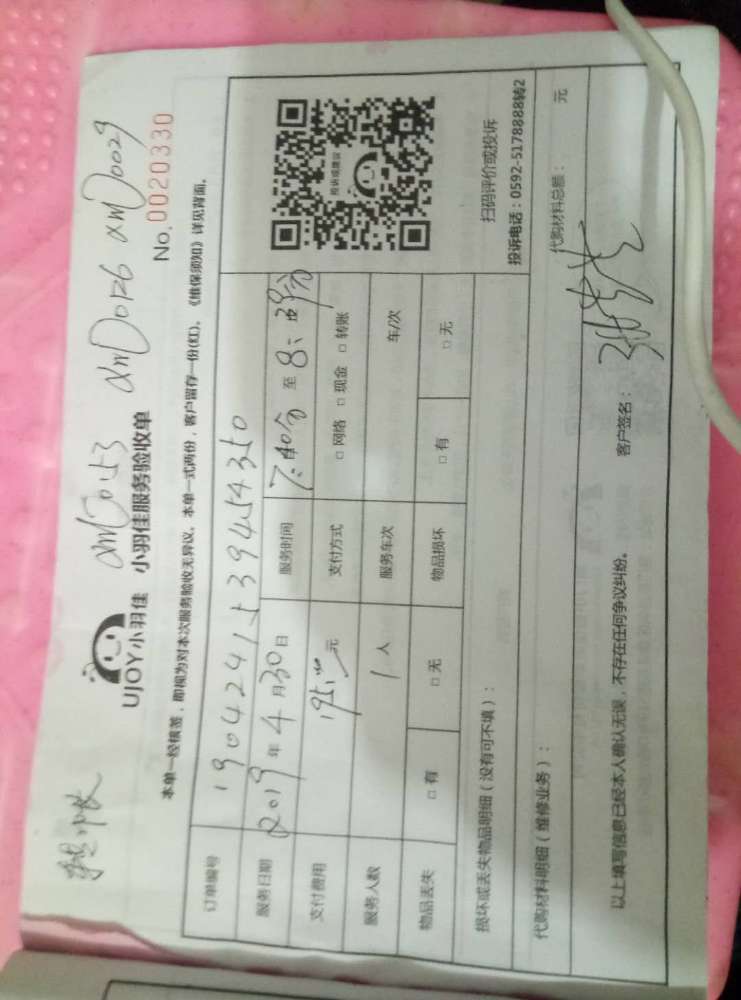 XMD0153 XMD0126 XMD0029
UJOY小羽佳 小羽佳服务验收单
No.0020330
本单一经核签，即视为对本次服务验收无异议。本单一式两份，客户留存一份(红)。《维保须知》详见背面。
订单编号 1904241539454350
服务日期 2019年4月30日 服务时间 7:40分 至 8:
支付费用 195 元 支付方式 □网络 □现金 □转账
服务人数 1人 服务车次 车/次
物品丢失 □有 □无 物品损坏 □有 □无
投诉或建议
扫码评价或投诉
投诉电话：0592-5178888转2
损坏或丢失物品明细（没有可不填）：
代购材料明细（维修业务）： 代购材料总额： 元
以上填写信息已经本人确认无误，不存在任何争议纠纷。 客户签名：